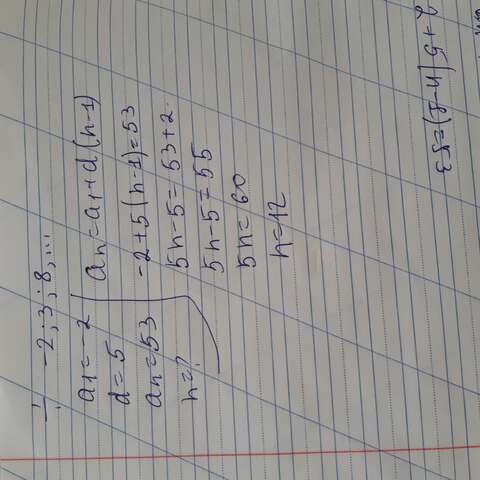 ÷ -2; 3; 8; ...
a1 = -2
d = 5
an = 53
n = ?
an = a1 + d (n-1)
-2 + 5 (n-1) = 53
5n - 5 = 53 + 2
5n - 5 = 55
5n = 60
n = 12
2 + 5 (n-1) = 53